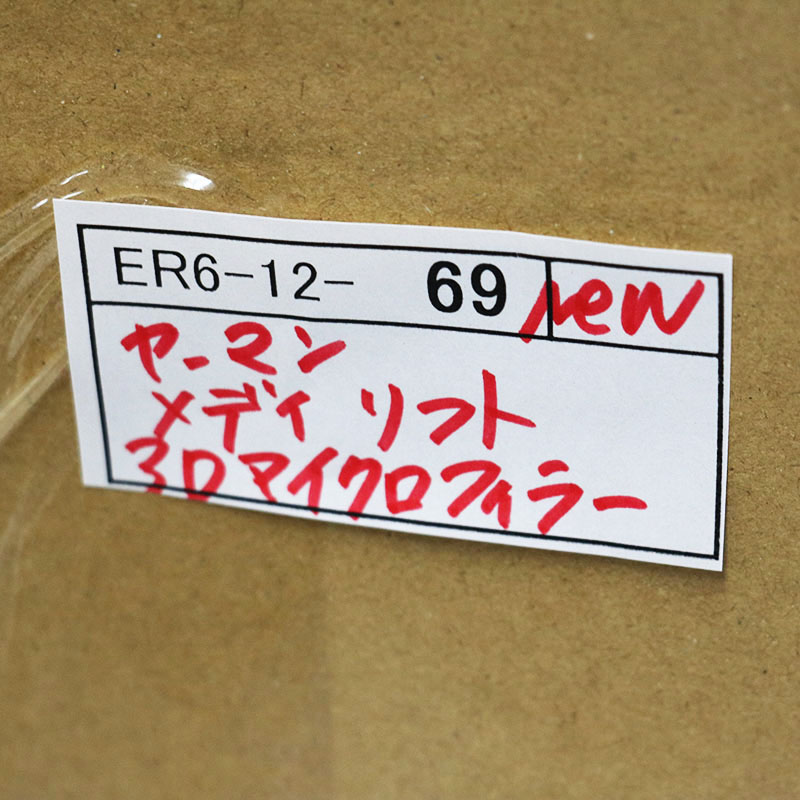 ER6-12- 69 new
ヤーマン
メディ リフト
3Dマイクロフィラー